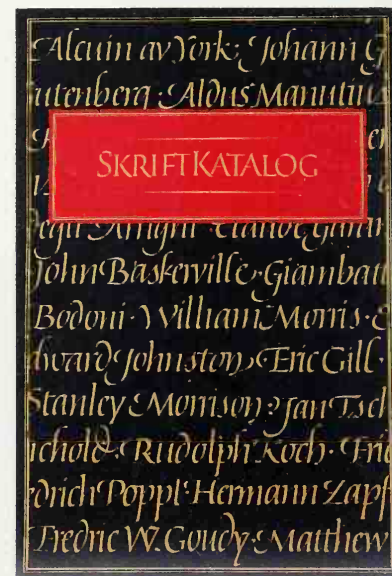 Alcuin av York · Johann G
utenberg · Aldus Manutiu
SKRIFTKATALOG
John Baskerville · Giambat
Bodoni · William Morris · E
dward Johnston · Eric Gill ·
Stanley Morrison · Jan Tsch
ichold · Rudolph Koch · Frie
drich Poppl · Hermann Zapf
Fredric W. Goudy · Matthew